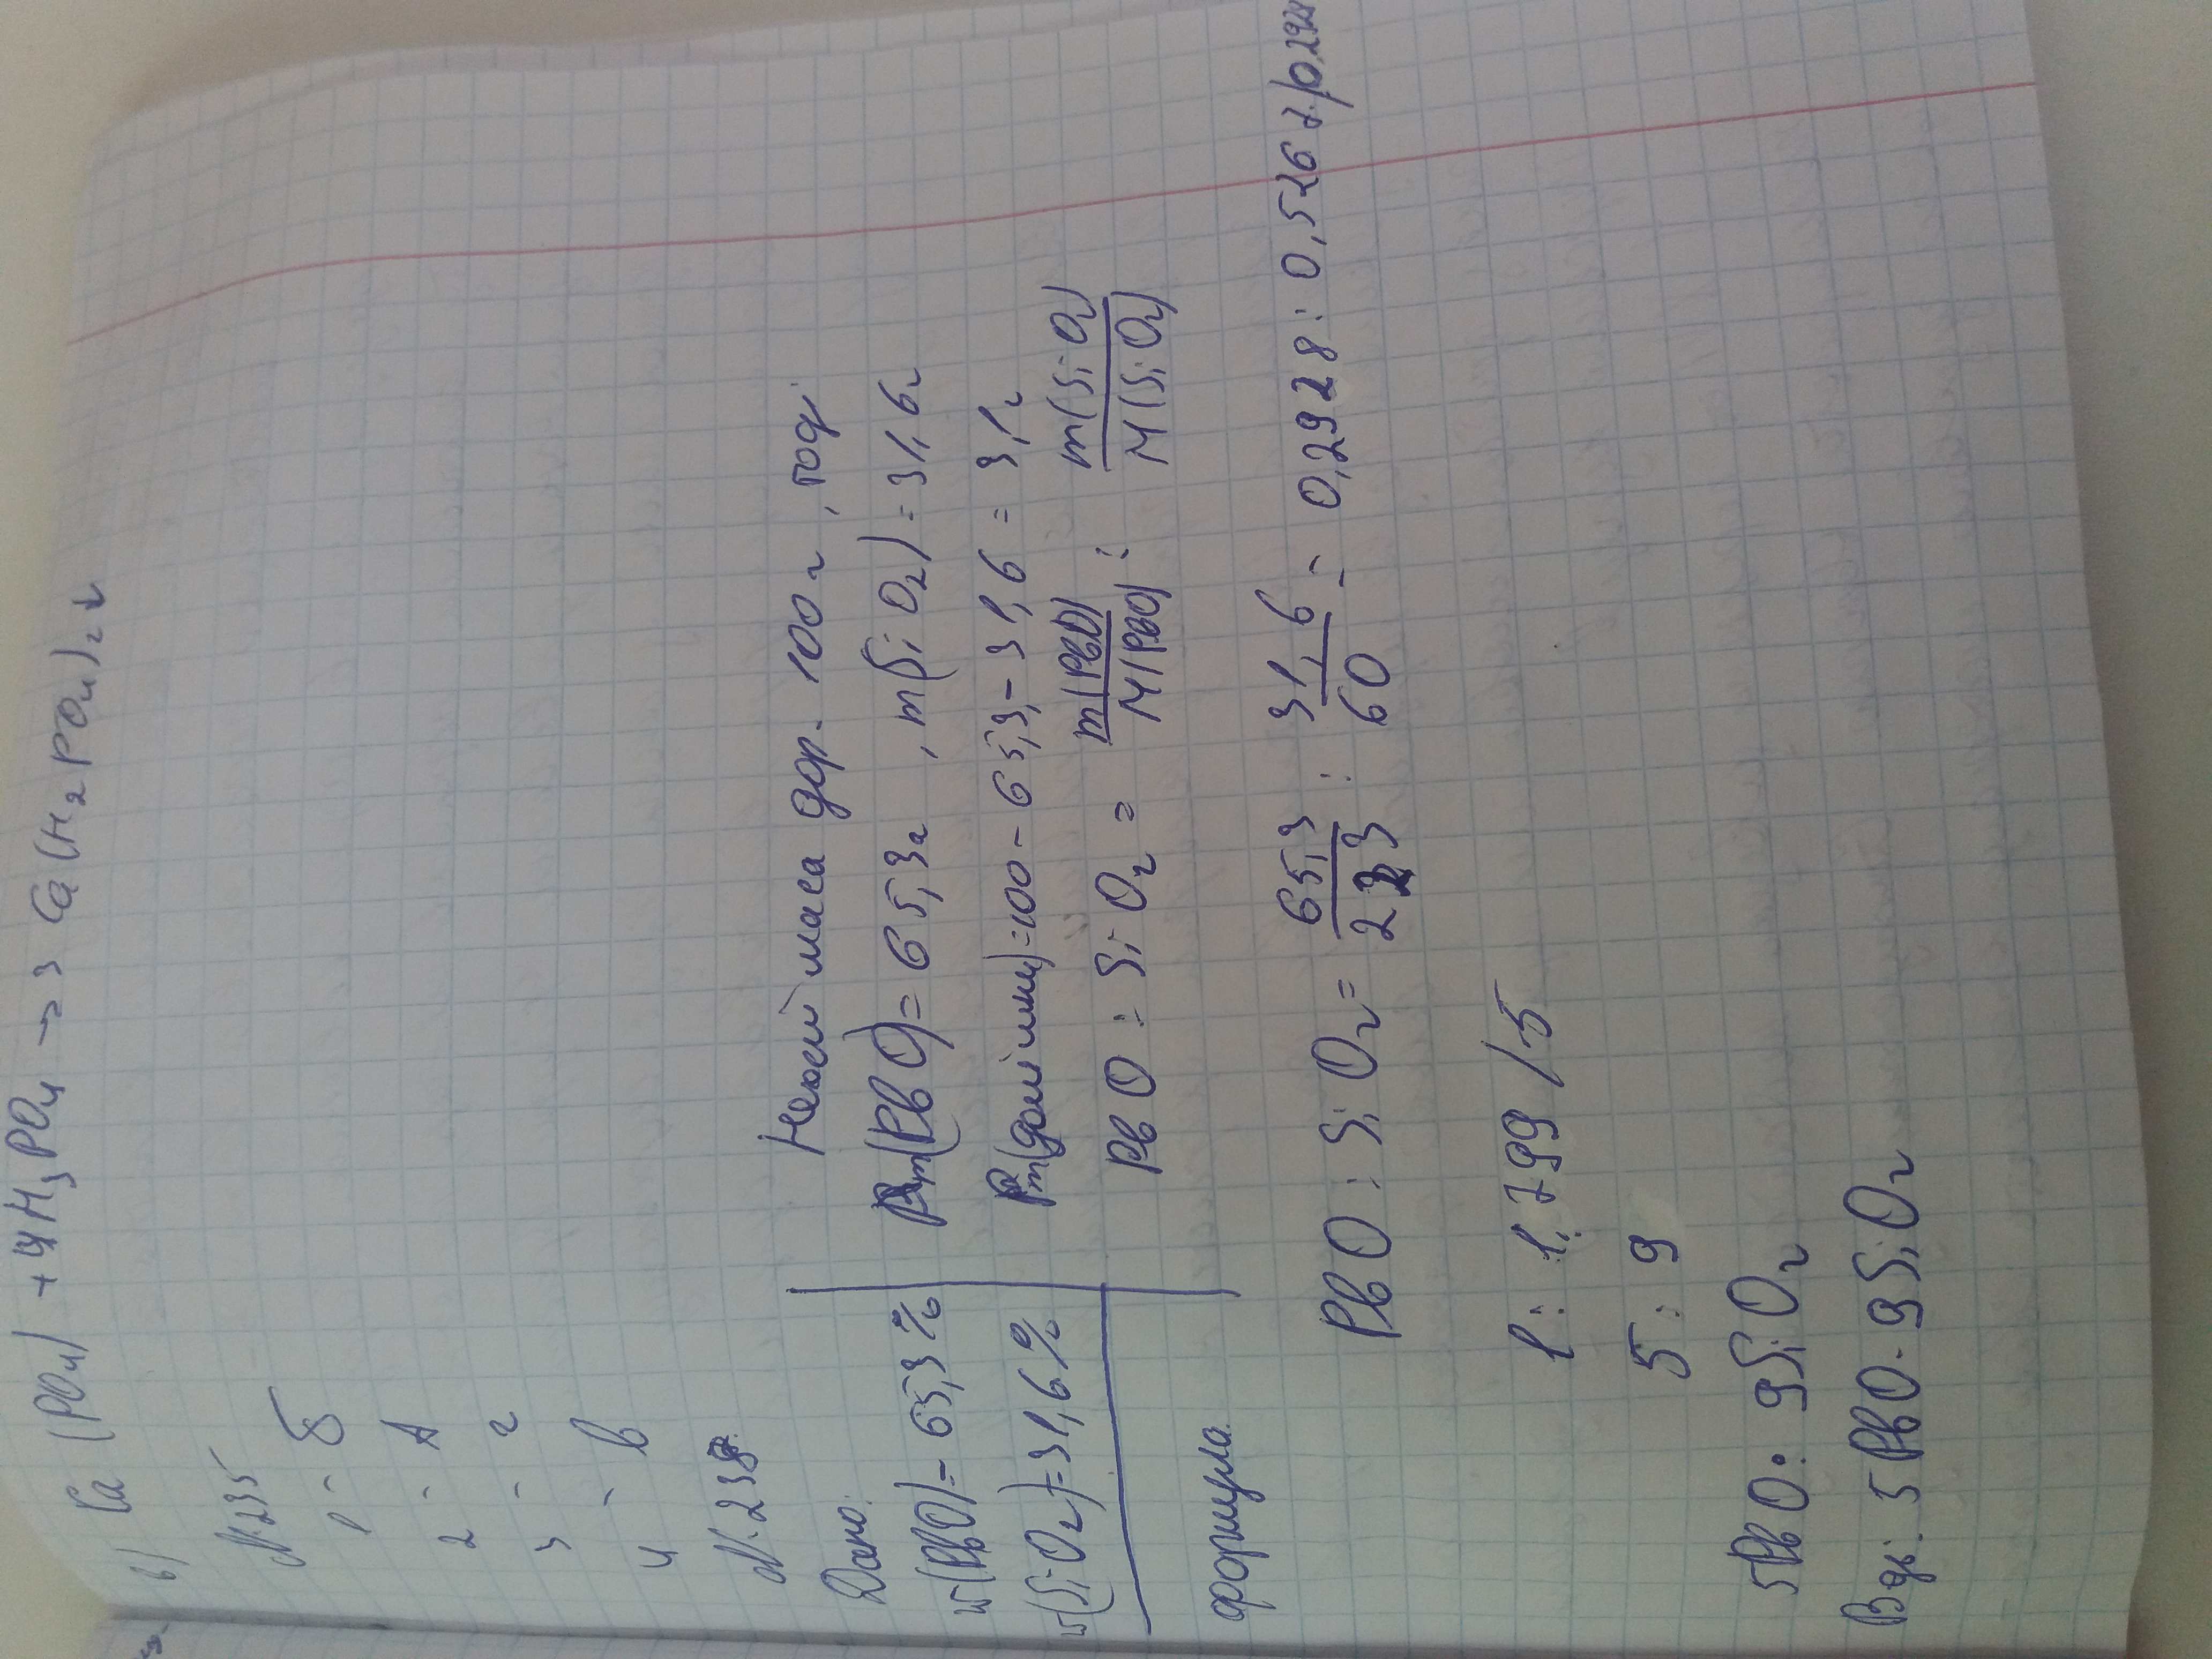 в) Ca (PO₄) + 4H₃PO₄ → 3 Ca(H₂PO₄)₂↓
N.235
1 - Б
2 - А
3 - г
4 - В
N.238.
Дано:
w(PbO)=65,3%
w(SiO₂)=31,6%
формула.
Нехай маса дор. 100г, тоді:
m(PbO)=65,3г, m(SiO₂)=31,6г
m(домішки)=100-65,3-31,6=3,1г
PbO : SiO₂ = m(PbO)/M(PbO) : m(SiO₂)/M(SiO₂)
PbO : SiO₂ = 65,3/223 : 31,6/60 = 0,2928 : 0,5267 /0,2928
1 : 1,799 /·5
5 : 9
5PbO : 9SiO₂
Відп: 5PbO·9SiO₂